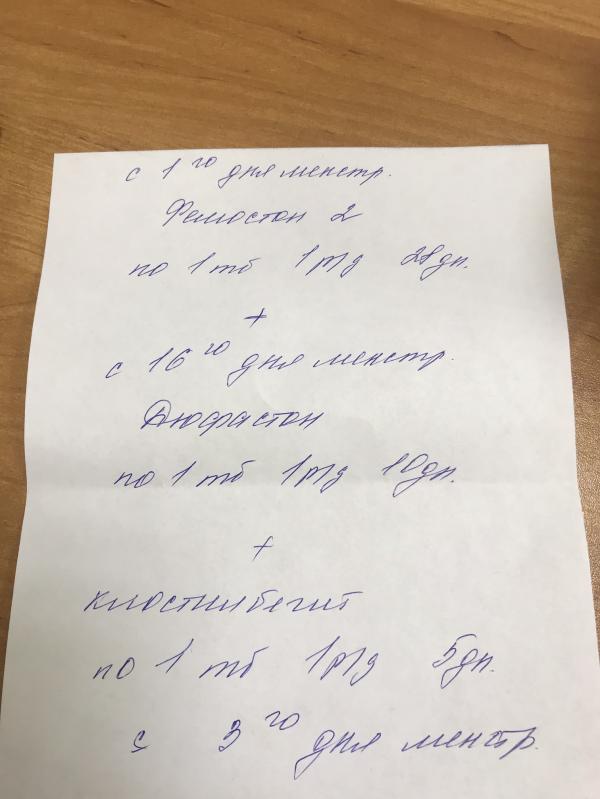 с 1го дня менстр.
Фемостон 2
по 1 тб 1р/д 28дн.
+
с 16го дня менстр.
Дюфастон
по 1 тб 1р/д 10дн.
+
клостилбегит
по 1 тб 1р/д 5дн.
с 3го дня менстр.